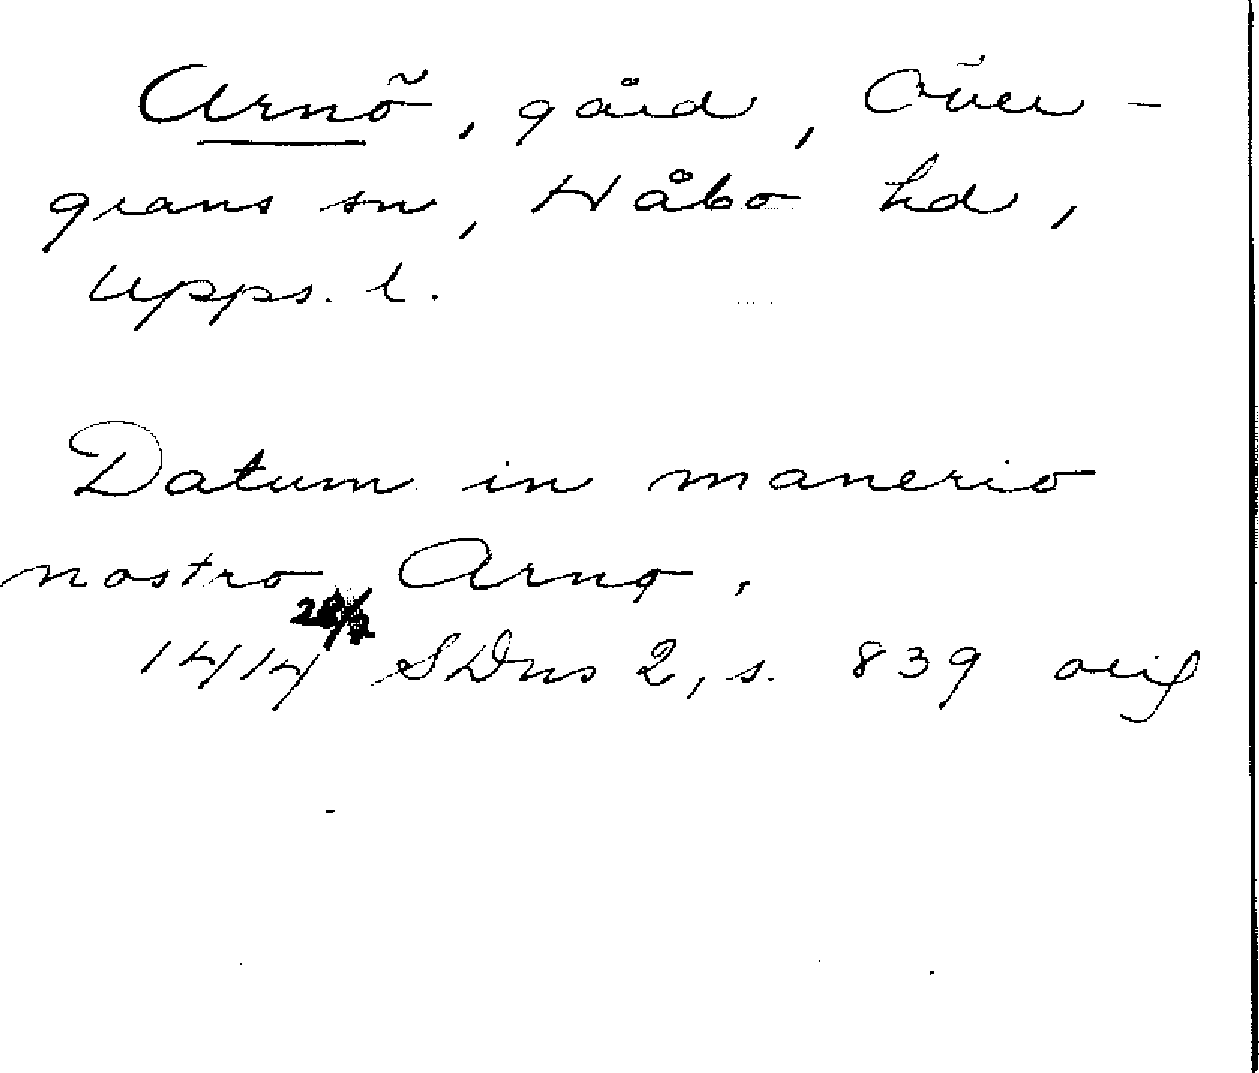 Arnö, gård, Över-
grans sn, Håbo hd,
Upps. l.
Datum in manerio
nostro Arnø,
1414 SDns 2, s. 839 orig